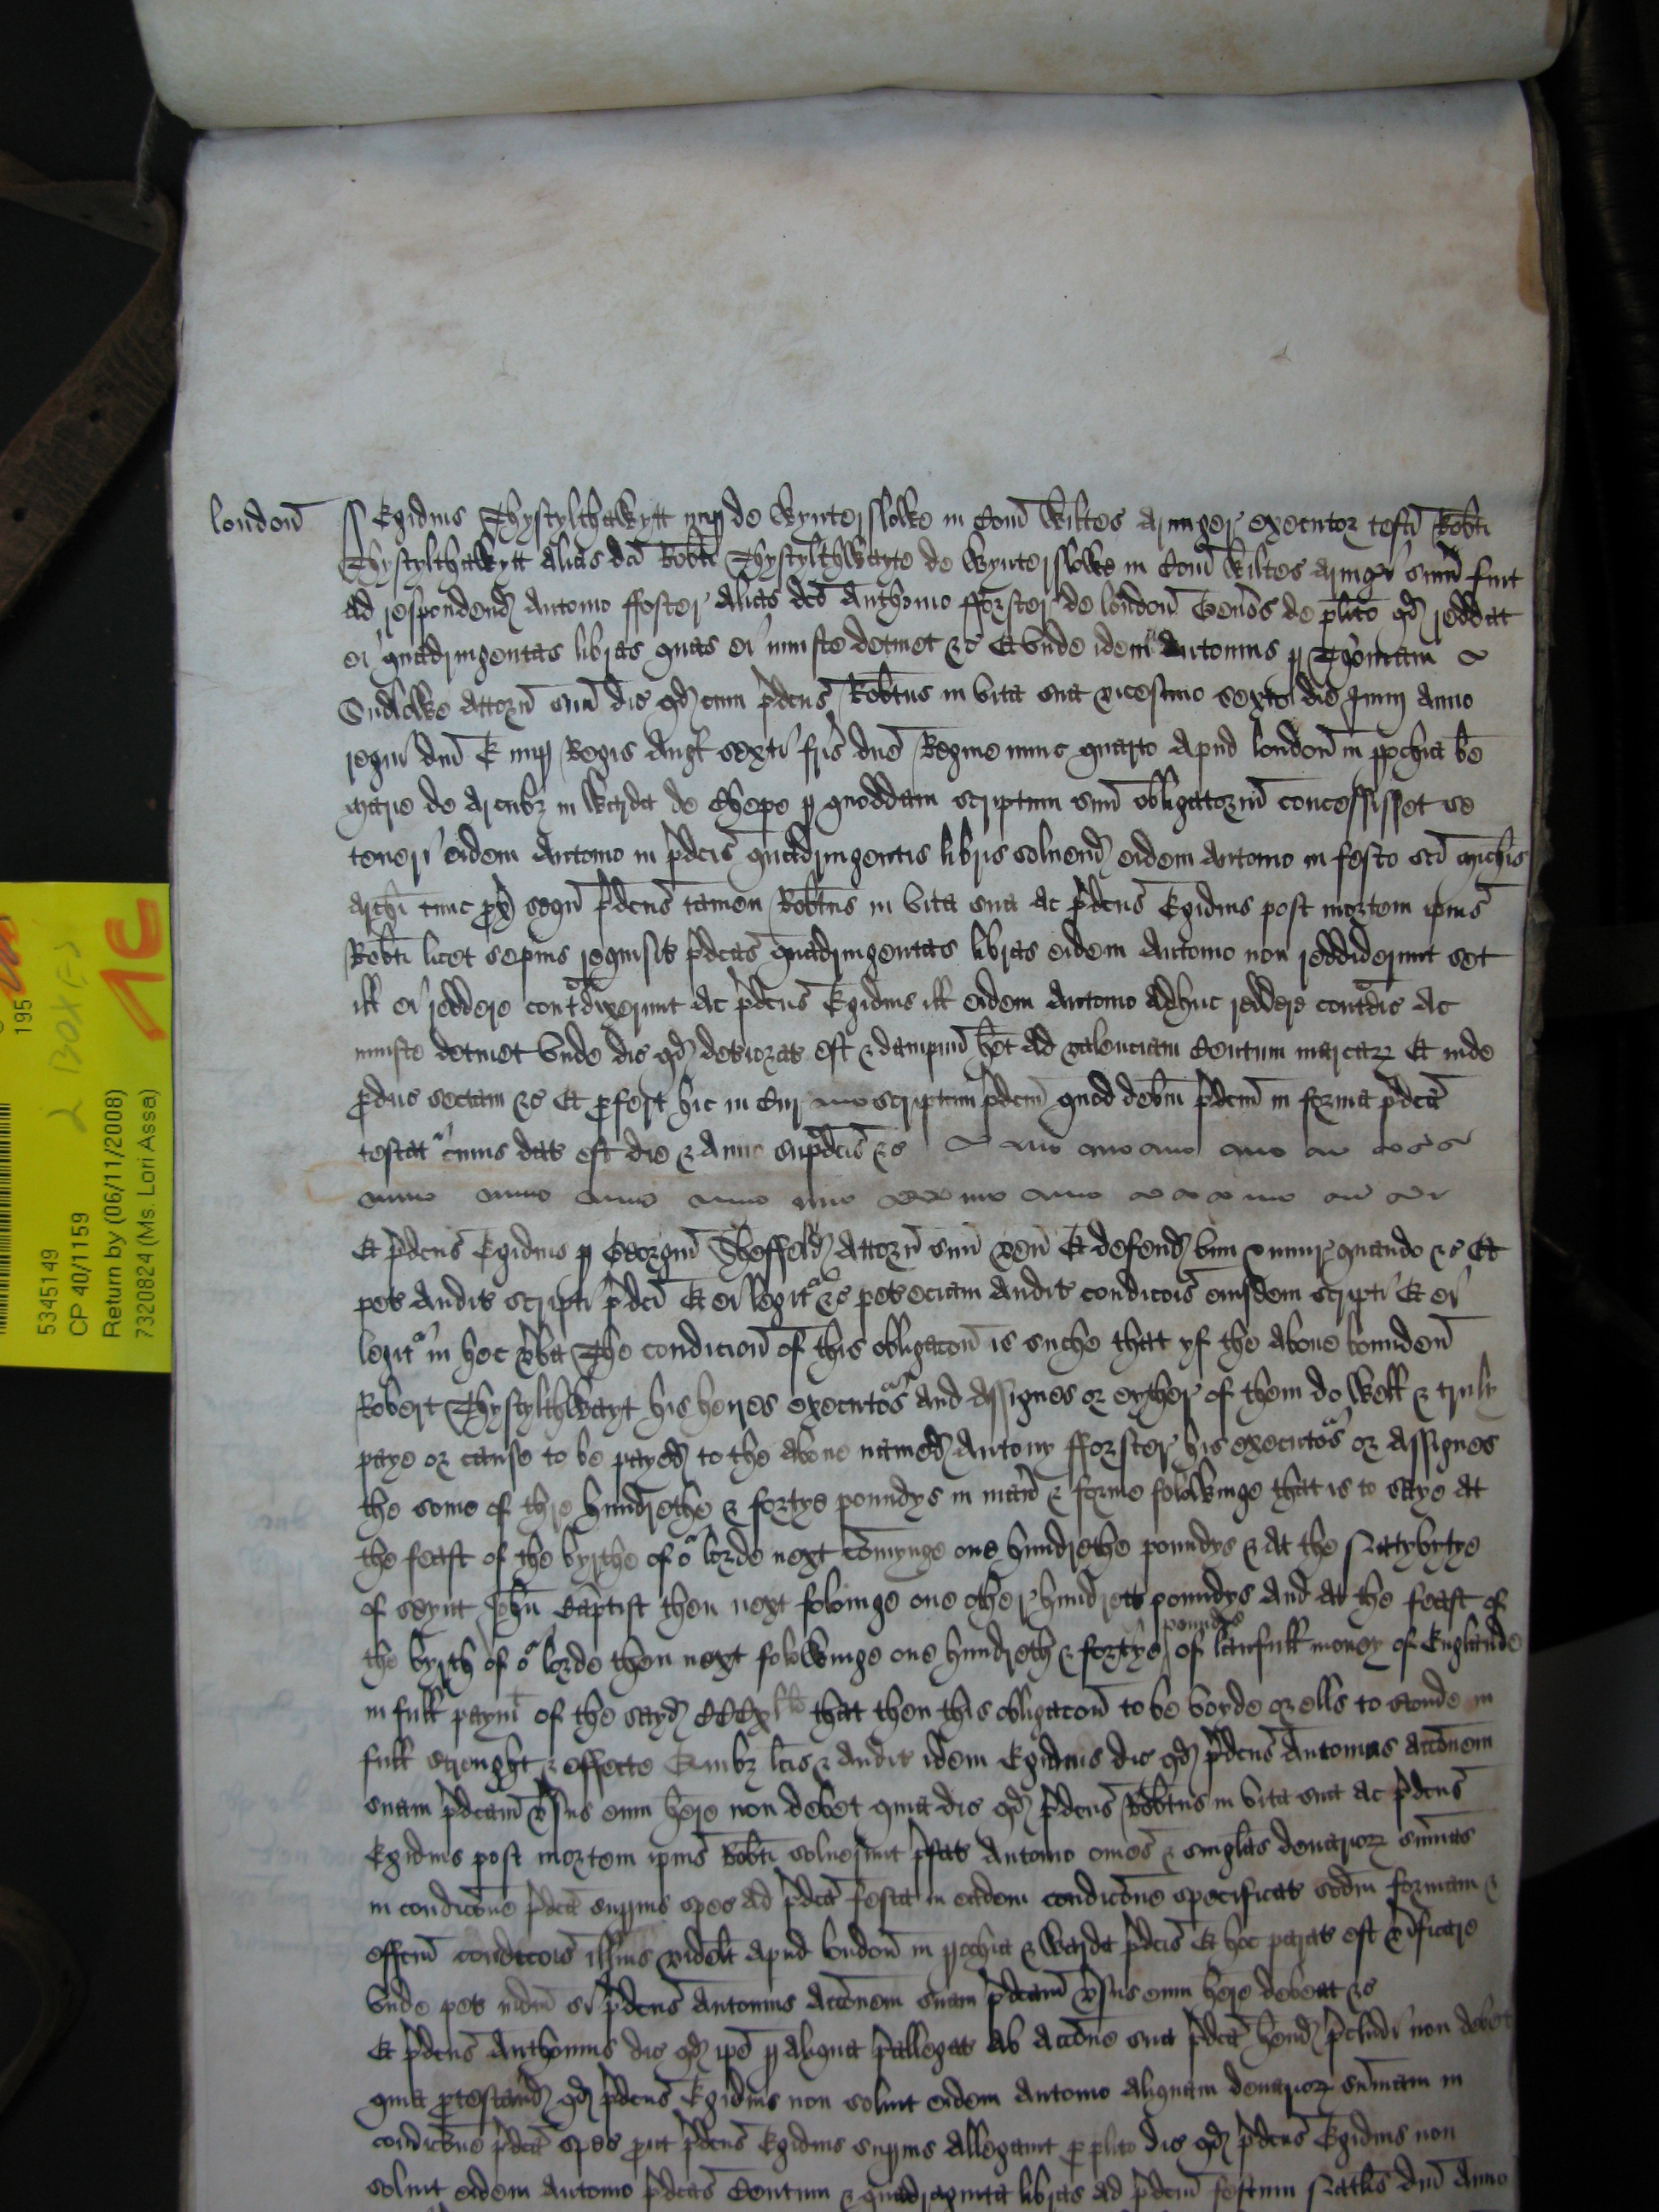 londoñ
Egidius Thystylthwaytt nup de Wynterslowe in Com̄ Wiltes Armiger executor testī Rob̄ti
Thystylthwaytt alias dc̄i Rob̄ti Thystylthwayte de Wynterslowe in Com̄ Wiltes Armigī sum̄ fuit
ad respondend Antonio ffoster alias dc̄o Anthonio fforster de londoñ Gen̄os de pl̄ito qd reddat
ei quadringentas libras quas ei iniuste detinet &c Et unde idem Antonius p Thomam
attorñ suū dic qd cum p̄dcus Rob̄tus in vita sua vicesimo sexto die Junij Anno
regni dn̄i E nup Regis Angl sexti fr̄is dn̄e Regine nunc quarto apud londoñ in pochia b̄e
Marie de Arcub3 in Warda de Chepe p quoddam scriptum suū obligatoriū concessisset se
teneri eidem Antonio in p̄dcis quadringentis libris solvend eidem Antonio in festo sc̄i Mich̄is
Arch̄i tunc px̄ sequñ p̄dcus tamen Rob̄tus in vita sua ac p̄dcus Egidius post mortem ip̄ius
Rob̄ti licet sepius requisit p̄dcas quadringentas libras eidem Antonio non reddiderunt set
ill ei reddere contᵃdixerunt Ac p̄dcus Egidius ill eidem Antonio adhuc reddere contᵃdic Ac
iniuste detinet Unde dic qd deteriorat est & dampnū h̄et ad valenciam Centum marcar̄ Et inde
p̄duc sectam &c Et p̄fert hic in Cur scriptum p̄dcm̄ quod deb̄m p̄dcm̄ in forma p̄dca
testatᵃ cuius dat est die & Anno sup̄dcis &c
Et p̄dcus Egidius p Georgiū Sheffeld Attorñ suū veñ Et defend vim & iniur quando &c Et
pet auditᵃ scripti p̄dci Et ei legitᵃ &c petit eciam auditᵃ condicōis eiusdem scripti Et ei
legitᵃ in hec v̄ba The condicioñ of this obligacoñ is suche that yf the above boundeñ
Robert Thystylthwayt his heires executoᵃs and assignes or eyther of them do well & truly
paye or cause to be payed to the above named Antony fforster his executoᵃs or assignes
the some of thre hundrethe & fortye poundys in man̄ & forme folowinge that is to saye at
the feast of the byrthe of oᵃ lorde next comynge one hundrethe poundys & at the Natyvytye
of seynt John̄ Baptist then next folowinge one other hundreth poundys and at the feast of
the byrth of oᵃ lorde then next folowinge one hundreth & fortye poundys of laufull money of Englande
in full paymᵗ of the sayd CCCxl li that then this obligacoñ to be voyde or ells to stonde in
full strenght & effecte Quib3 lcis & audit idem Egidius dic qd p̄dcus Antonius accōnem
suam p̄dcam v̄sus eum h̄ere non debet quia dic qd p̄dcus Rob̄tus in vita sua ac p̄dcus
Egidius post mortem ip̄ius Rob̄ti solverunt p̄fat Antonio om̄es & singlas denarior̄ sum̄as
in condicōne p̄dca supius spec ad p̄dca festa in eadem condicōne specificat scdm̄ formam &
effcm̄ condicōis illius videlt apud londoñ in pochia & warda p̄dcis Et hoc parat est v̄ificare
unde pet iudm̄ si p̄dcus Antonius Accōnem suam p̄dcam v̄sus eum h̄ere debeat &c
Et p̄dcus Anthonius dic qd ip̄e p aliqua p̄allegat ab accōne sua p̄dca h̄end p̄cludi non debet
quia p̄testand qd p̄dcus Egidius non solvit eidem Antonio aliquam denarior̄ sum̄am in
condicōne p̄dca spec put p̄dcus Egidius supius allegavit p pl̄ito dic qd p̄dcus Egidius non
solvit eidem Antonio p̄dcas Centum & quadraginta libras ad p̄dcm̄ festum Natlis dn̄i Anno
195
2 BOX(E)
1C
5345149
CP 40/1159
Return by (06/11/2008)
7320824 (Ms. Lori Assa)